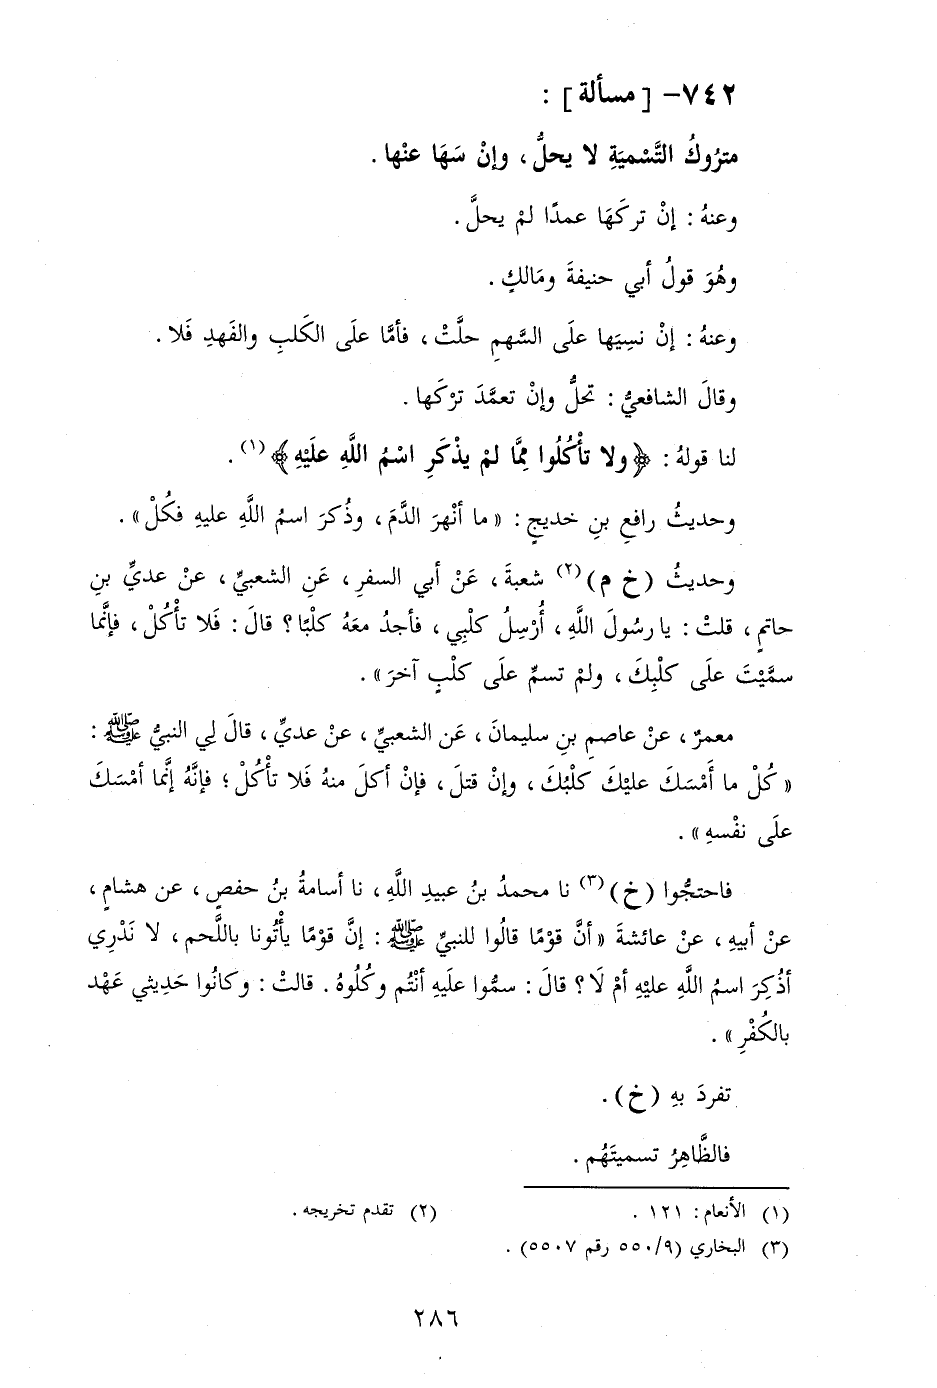 ٧٤٢- [ مسألة ] :
متْرُوكُ التَّسْميَةِ لا يحلُّ ، وإنْ سَهَا عنْها .
وعنهُ : إنْ تركَهَا عمدًا لمْ يحلَّ .
وهُوَ قولُ أبي حنيفةَ ومَالكٍ .
وعنهُ : إنْ نسِيَها علَى السَّهمِ حلَّتْ ، فأمَّا علَى الكَلبِ والفَهدِ فَلا .
وقالَ الشافعيُّ : تحلُّ وإنْ تعمَّدَ ترْكَها .
لنا قولهُ : ﴿ ولا تأْكُلُوا مِمَّا لمْ يذْكَرِ اسْمُ اللَّهِ علَيْهِ ﴾(١) .
وحديثُ رافعِ بنِ خديجٍ : « ما أنْهرَ الدَّمَ ، وذُكرَ اسمُ اللَّهِ عليهِ فكُلْ » .
وحديثُ (خ م)(٢) شعبةَ ، عَنْ أبي السفرِ ، عَنِ الشعبيِّ ، عنْ عديِّ بنِ
حاتمٍ ، قلتْ : يا رسُولَ اللَّهِ ، أُرْسِلُ كلْبِي ، فأجدُ معَهُ كلْبًا ؟ قالَ : فَلا تأْكُلْ ، فإنَّما
سمَّيْتَ علَى كلْبِكَ ، ولمْ تسمِّ علَى كلْبٍ آخرَ » .
معمرٌ ، عنْ عاصمِ بنِ سليمانَ ، عَن الشعبيِّ ، عنْ عديٍّ ، قالَ لِي النبيُّ ﷺ :
« كُلْ ما أَمْسَكَ عليْكَ كلْبُكَ ، وإنْ قتلَ ، فإنْ أكلَ منهُ فَلا تأْكُلْ ؛ فإنَّهُ إنَّما أمْسَكَ
علَى نفْسهِ » .
فاحتجُّوا (خ)(٣) نا محمدُ بنُ عبيدِ اللَّهِ ، نا أسامةُ بنُ حفصٍ ، عن هشامٍ ،
عنْ أبيهِ ، عنْ عائشةَ « أنَّ قوْمًا قالُوا للنبيِّ ﷺ : إنَّ قوْمًا يأْتُونا باللَّحم ، لا نَدْرِي
أذُكِرَ اسمُ اللَّهِ عليْهِ أمْ لَا ؟ قالَ : سمُّوا علَيهِ أنْتُم وكُلُوهُ . قالتْ : وكانُوا حَدِيثي عَهْد
بالكُفْرِ » .
تفردَ بهِ (خ) .
فالظَّاهِرُ تسميتَهُم .
(١) الأنعام : ١٢١ .
(٢) تقدم تخريجه .
(٣) البخاري (٩/ ٥٥٠ رقم ٥٥٠٧) .
٢٨٦